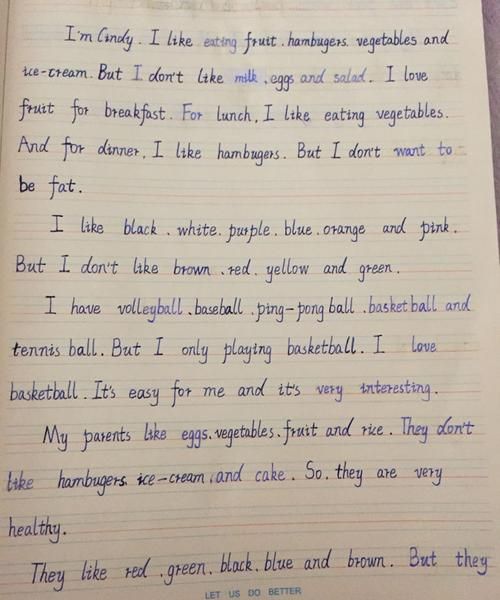 I'm Cindy. I like eating fruit. hambugers. vegetables and
ice-cream. But I don't like milk. eggs and salad. I love
fruit for breakfast. For lunch, I like eating vegetables.
And for dinner, I like hambugers. But I don't want to
be fat.
I like black. white. purple. blue. orange and pink.
But I don't like brown. red. yellow and green.
I have volleyball. baseball. ping-pong ball. basketball and
tennis ball. But I only playing basketball. I love
basketball. It's easy for me and it's very interesting.
My parents like eggs. vegetables. fruit and rice. They don't
like hambugers. ice-cream. and cake. So. they are very
healthy.
They like red. green. black. blue and brown. But they
LET US DO BETTER